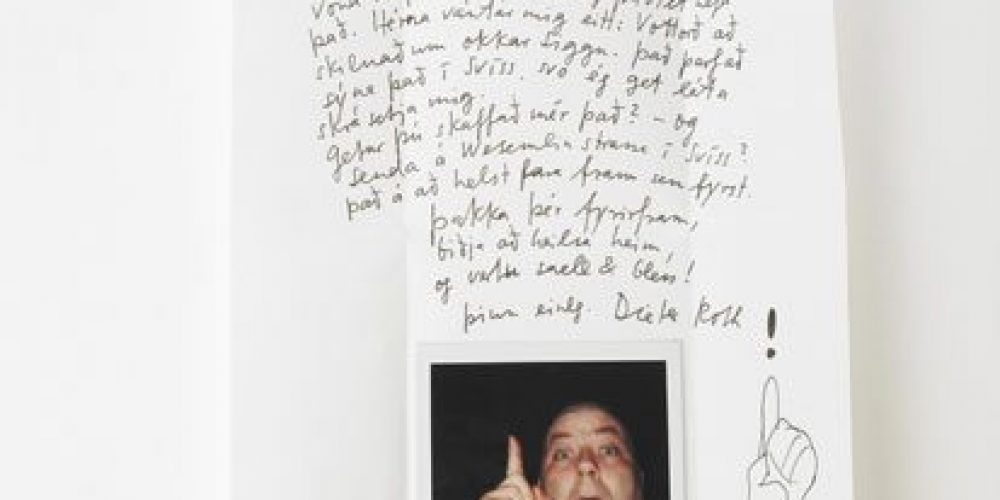 Vona
það. Hérna vantar mig eitt: Vottorð að
skilnað um okkar Siggu. það þarf að
sýna það í Sviss. svo ég get láta
skrásetja mig.
Getur þú skaffað mér það? - og
senda á Wesemlinstrasse í Sviss?
það á að helst fara fram sem fyrst.
þakka þér fyrirfram,
biðja að heilsa heim,
og vertu saell & bless!
þinn einl. Dieter Roth
!